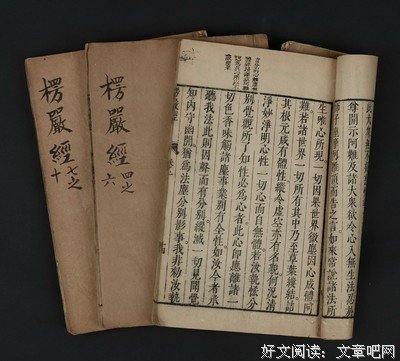 尊開示阿難及諸大眾欲令心入無生法忍
師子座摩阿難頂而告之言如來常說諸法所
生唯心所現一切因果世界微塵因心成體阿
難若諸世界一切所有其中乃至草葉縷結詰
其根元咸有體性縱令虛空亦有名貌何況清
淨妙淨明心性一切心而自無體若汝執恡分
別覺觀所了知性必為心者此心即應離諸一
切色香味觸諸塵事業別有全性如汝今者承
聽我法此則因聲而有分別縱滅一切見聞覺
知內守幽閒猶為法塵分別影事我非勑汝執
楞嚴經
楞嚴經 四之六
楞嚴經 七之十
好文阅读:文章吧网